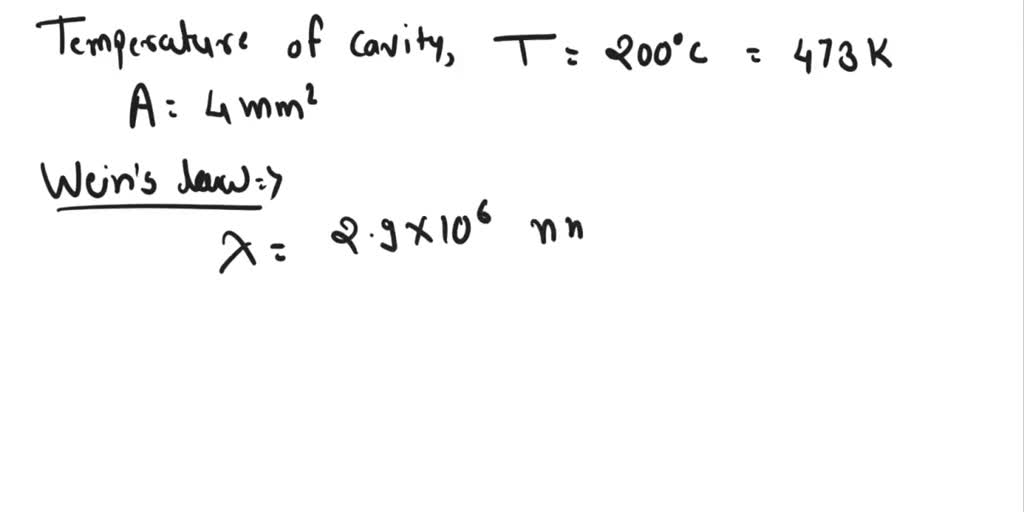 Temperature of cavity, T = 200°C = 473 K
A = 4 mm²
Wein's law =>
λ = 2.9 × 10⁶ nn